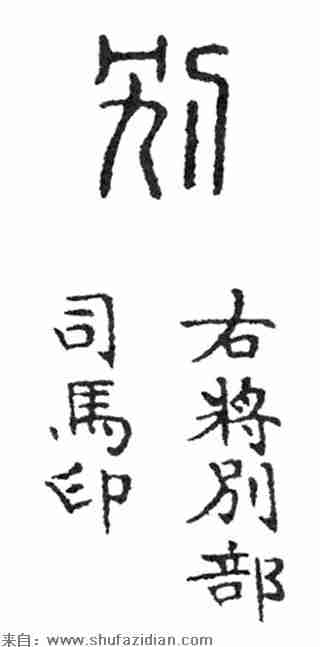 別
右将別部
司馬印
来自：www.shufazidian.com